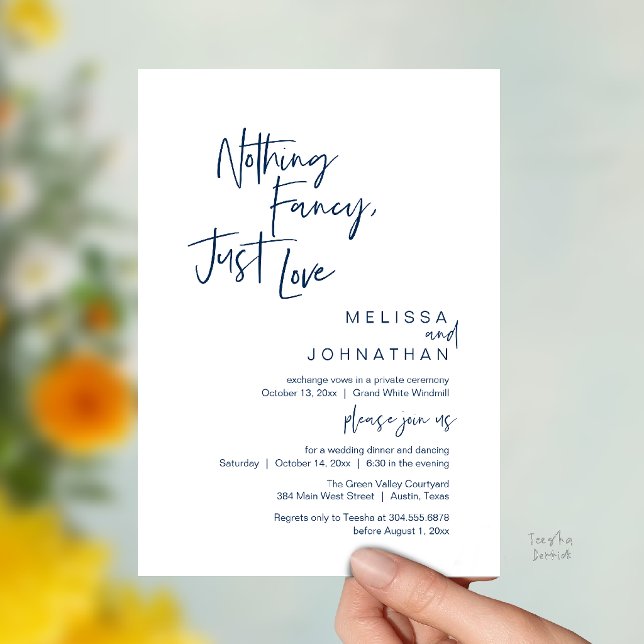 Nothing
Fancy,
Just Love
MELISSA
and
JOHNATHAN
exchange vows in a private ceremony
October 13, 20xx | Grand White Windmill
please join us
for a wedding dinner and dancing
Saturday | October 14, 20xx | 6:30 in the evening
The Green Valley Courtyard
384 Main West Street | Austin, Texas
Regrets only to Teesha at 304.555.6878
before August 1, 20xx
Teesha
Derrick